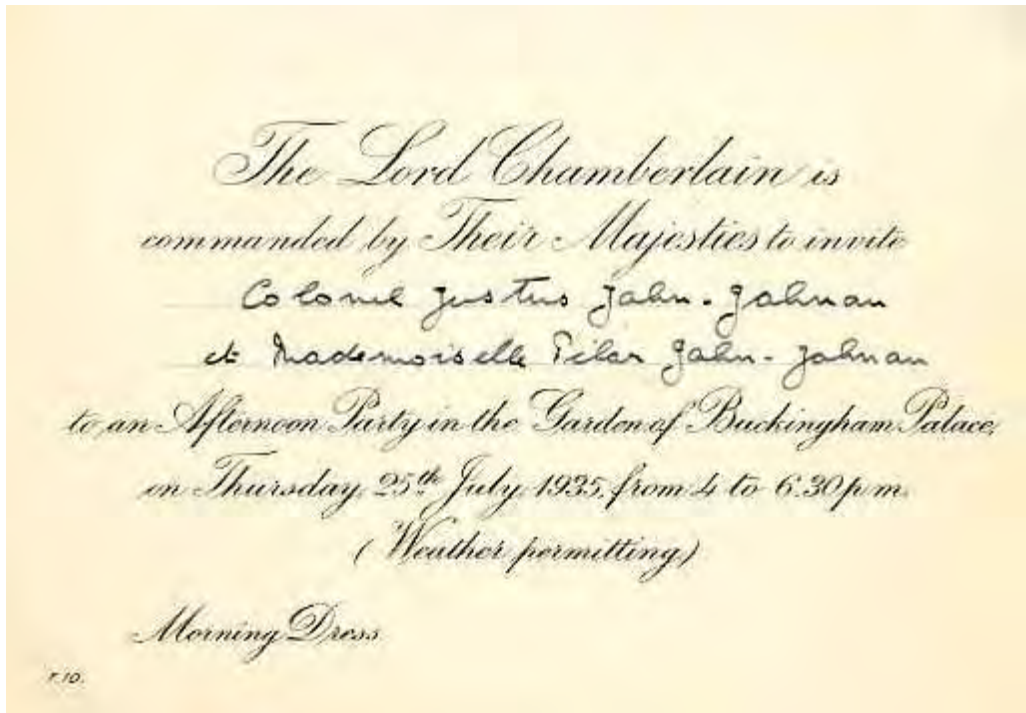 The Lord Chamberlain is
commanded by Their Majesties to invite
Colonel Justus Jahn-Jahnau
et Mademoiselle Pilar Jahn-Jahnau
to an Afternoon Party in the Garden of Buckingham Palace,
on Thursday, 25th July, 1935, from 4 to 6.30 p.m.
(Weather permitting)
Morning Dress